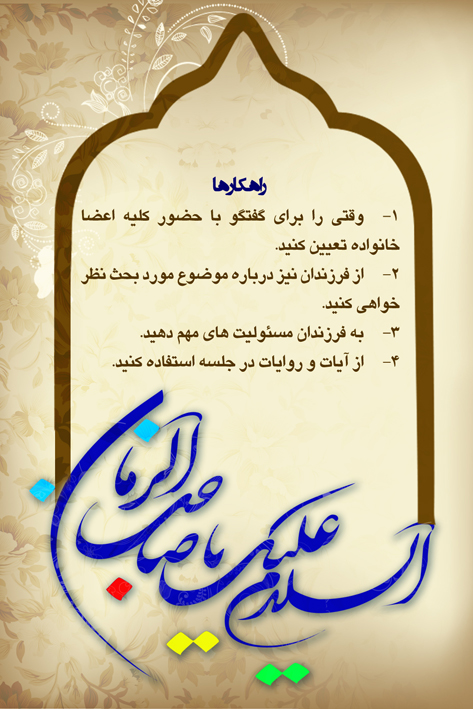 راهکارها
۱- وقتی را برای گفتگو با حضور کلیه اعضا
خانواده تعیین کنید.
۲- از فرزندان نیز درباره موضوع مورد بحث نظر
خواهی کنید.
۳- به فرزندان مسئولیت های مهم دهید.
۴- از آیات و روایات در جلسه استفاده کنید.
السلام علیک یا صاحب الزمان